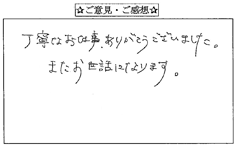 ☆ご意見・ご感想☆
丁寧なお仕事、ありがとうございました。
またお世話になります。